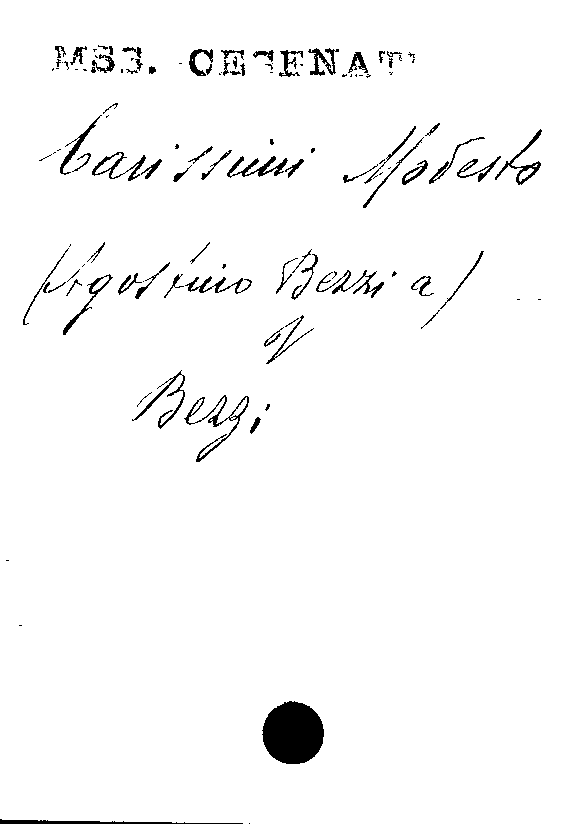 MSS. CESENATI
Carissimi Modesto
(Agostino Bezzi a)
V
Bezzi